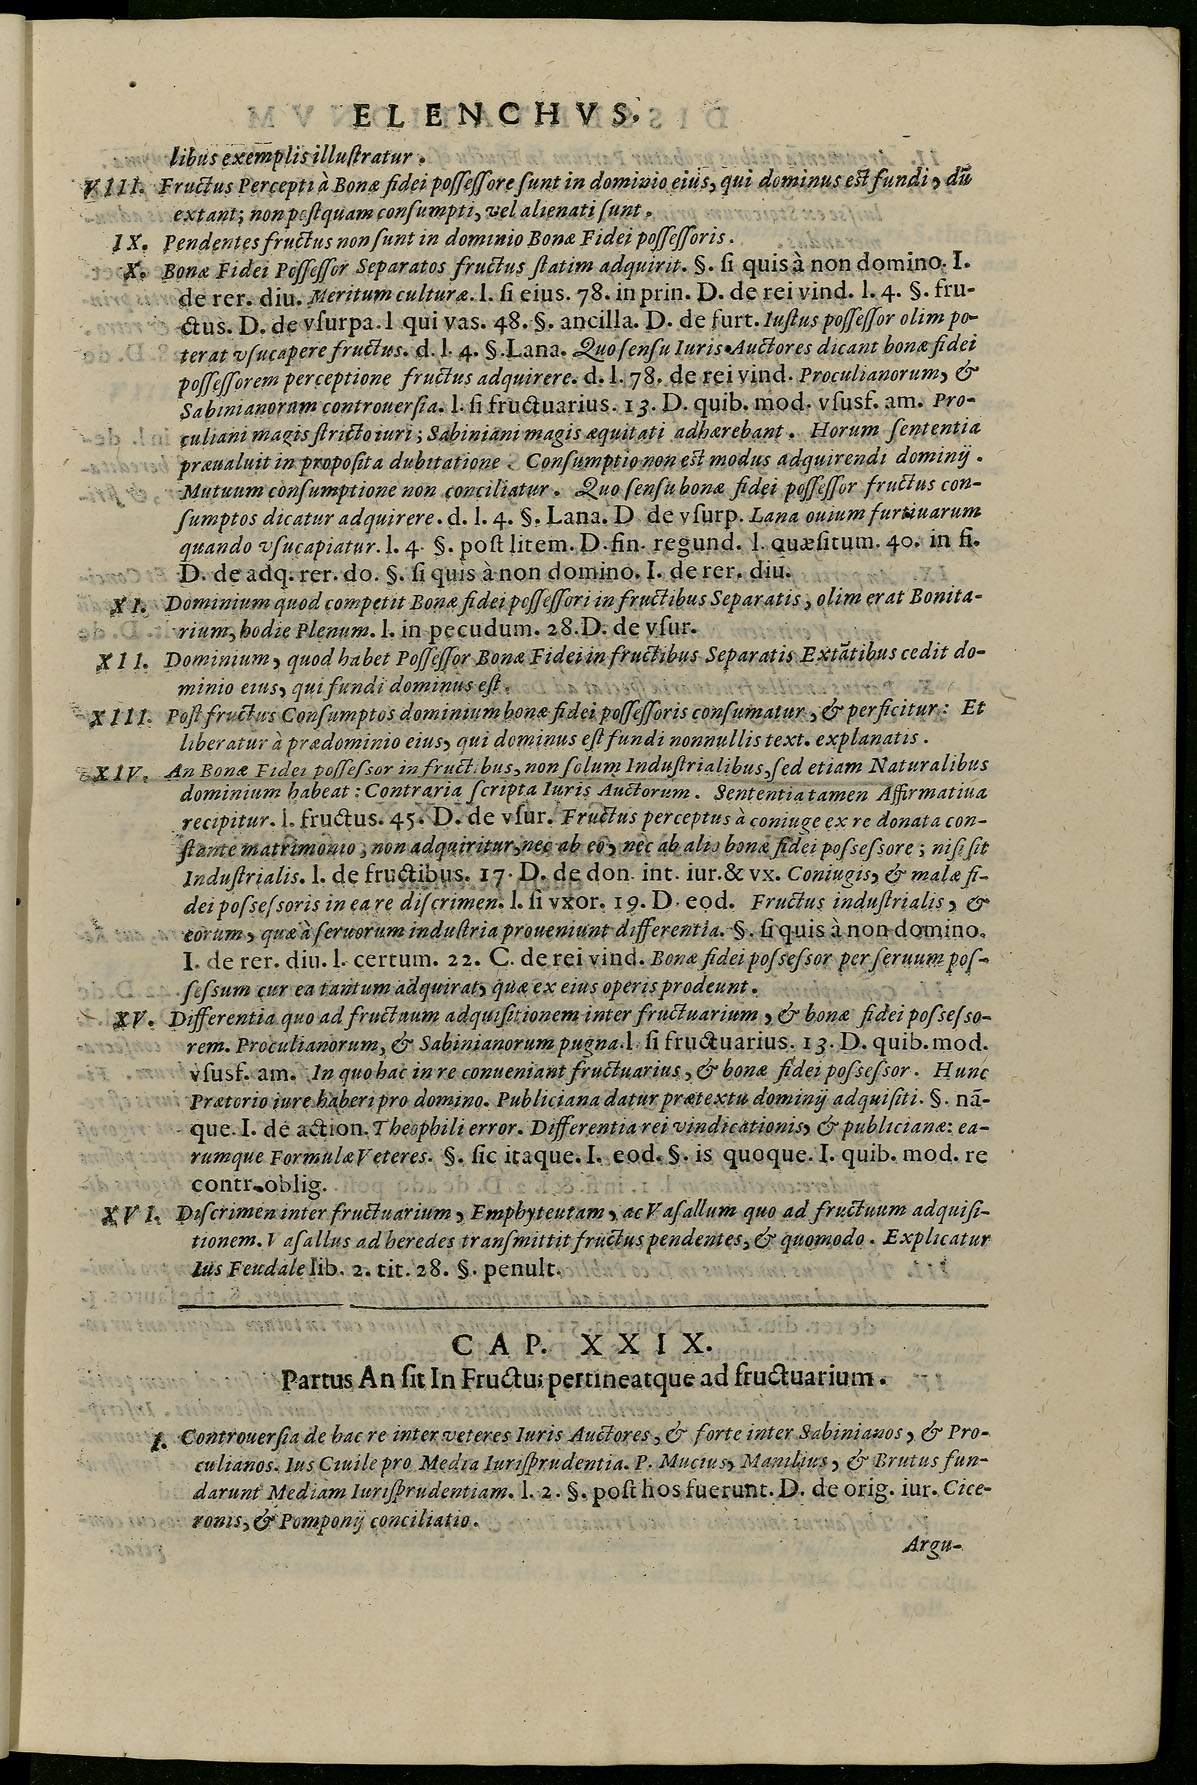 ELENCHVS.
libus exemplis illuſtratur.
VIII. Fructus Percepti à Bonæ fidei poſſeſſore ſunt in dominio eius, qui dominus eſt fundi, dũ
extant; non poſtquam conſumpti, vel alienati ſunt.
IX. Pendentes fructus non ſunt in dominio Bonæ Fidei poſſeſſoris.
X. Bonæ Fidei Poſſeſſor Separatos fructus ſtatim adquirit. §. ſi quis à non domino. I.
de rer. diu. Meritum culturæ. l. ſi eius. 78. in prin. D. de rei vind. l. 4. §. fru-
ctus. D. de vſurpa. l qui vas. 48. §. ancilla. D. de furt. Iuſtus poſſeſſor olim po-
terat vſucapere fructus. d. l. 4. §. Lana. Quo ſenſu Iuris Auctores dicant bonæ fidei
poſſeſſorem perceptione fructus adquirere. d. l. 78. de rei vind. Proculianorum, &
Sabinianorum controuerſia. l. ſi fructuarius. 13. D. quib. mod. vſusf. am. Pro-
culiani magis ſtricto iuri; Sabiniani magis æquitati adhærebant. Horum ſententia
præualuit in propoſita dubitatione. Conſumptio non eſt modus adquirendi dominij.
Mutuum conſumptione non conciliatur. Quo ſenſu bonæ fidei poſſeſſor fructus con-
ſumptos dicatur adquirere. d. l. 4. §. Lana. D de vſurp. Lana ouium furtiuarum
quando vſucapiatur. l. 4. §. poſt litem. D. fin. regund. l. quæſitum. 40. in fi.
D. de adq. rer. do. §. ſi quis à non domino. I. de rer. diu.
XI. Dominium quod competit Bonæ fidei poſſeſſori in fructibus Separatis, olim erat Bonita-
rium, hodie Plenum. l. in pecudum. 28. D. de vſur.
XII. Dominium, quod habet Poſſeſſor Bonæ Fidei in fructibus Separatis Extãtibus cedit do-
minio eius, qui fundi dominus eſt.
XIII. Poſt fructus Conſumptos dominium bonæ fidei poſſeſſoris conſumatur, & perficitur: Et
liberatur à prædominio eius, qui dominus eſt fundi nonnullis text. explanatis.
XIV. An Bonæ Fidei poſſeſſor in fructibus, non ſolum Induſtrialibus, ſed etiam Naturalibus
dominium habeat: Contraria ſcripta Iuris Auctorum. Sententia tamen Affirmatiua
recipitur. l. fructus. 45. D. de vſur. Fructus perceptus à coniuge ex re donata con-
ſtante matrimonio, non adquiritur, nec ab eo, nec ab alio bonæ fidei poſſeſſore; niſi ſit
Induſtrialis. l. de fructibus. 17. D. de don. int. iur. & vx. Coniugis, & malæ fi-
dei poſſeſſoris in ea re diſcrimen. l. ſi vxor. 19. D. eod. Fructus induſtrialis, &
eorum, quæ à ſeruorum induſtria proueniunt differentia. §. ſi quis à non domino.
I. de rer. diu. l. certum. 22. C. de rei vind. Bonæ fidei poſſeſſor per ſeruum poſ-
ſeſſum cur ea tantum adquirat, quæ ex eius operis prodeunt.
XV. Differentia quo ad fructuum adquiſitionem inter fructuarium, & bonæ fidei poſſeſſo-
rem. Proculianorum, & Sabinianorum pugna. l ſi fructuarius. 13. D. quib. mod.
vſusf. am. In quo hac in re conueniant fructuarius, & bonæ fidei poſſeſſor. Hunc
Prætorio iure haberi pro domino. Publiciana datur prætextu dominij adquiſiti. §. nã-
que. I. de action. Theophili error. Differentia rei vindicationis, & publicianæ: ea-
rumque Formulæ Veteres. §. ſic itaque. I. eod. §. is quoque. I. quib. mod. re
contr. oblig.
XVI. Diſcrimen inter fructuarium, Emphyteutam, ac Vaſallum quo ad fructuum adquiſi-
tionem. Vaſallus ad heredes tranſmittit fructus pendentes, & quomodo. Explicatur
Ius Feudale lib. 2. tit. 28. §. penult.
CAP. XXIX.
Partus An ſit In Fructu: pertineatque ad fructuarium.
I. Controuerſia de hac re inter veteres Iuris Auctores, & forte inter Sabinianos, & Pro-
culianos. Ius Ciuile pro Media Iuriſprudentia. P. Mucius, Manilius, & Brutus fun-
darunt Mediam Iuriſprudentiam. l. 2. §. poſt hos fuerunt. D. de orig. iur. Cice-
ronis, & Pomponij conciliatio.
Argu-